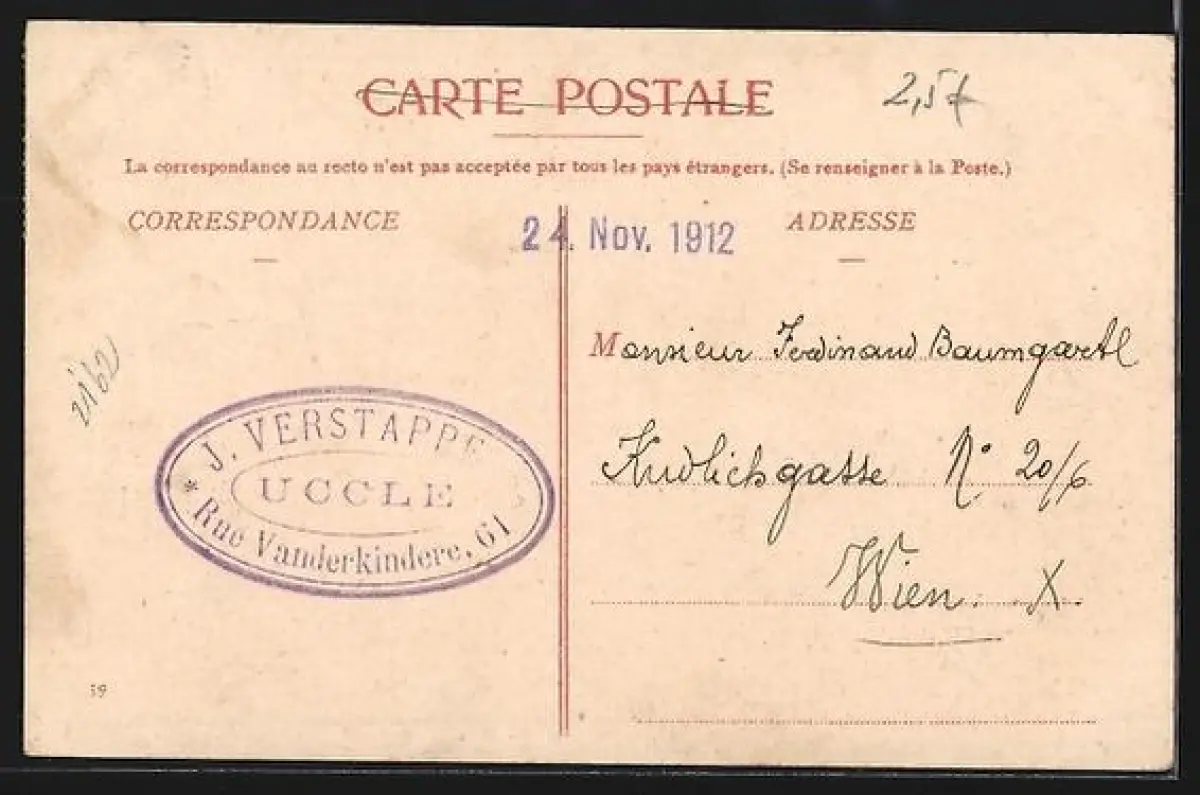 CARTE POSTALE
2,5
La correspondance au recto n'est pas acceptée par tous les pays étrangers. (Se renseigner à la Poste.)
CORRESPONDANCE
24. Nov. 1912
ADRESSE
Monsieur Ferdinand Baumgartl
Kudlichgasse N° 20/6
Wien. X.
* J. VERSTAPPE
UCCLE
Rue Vanderkindere, 61